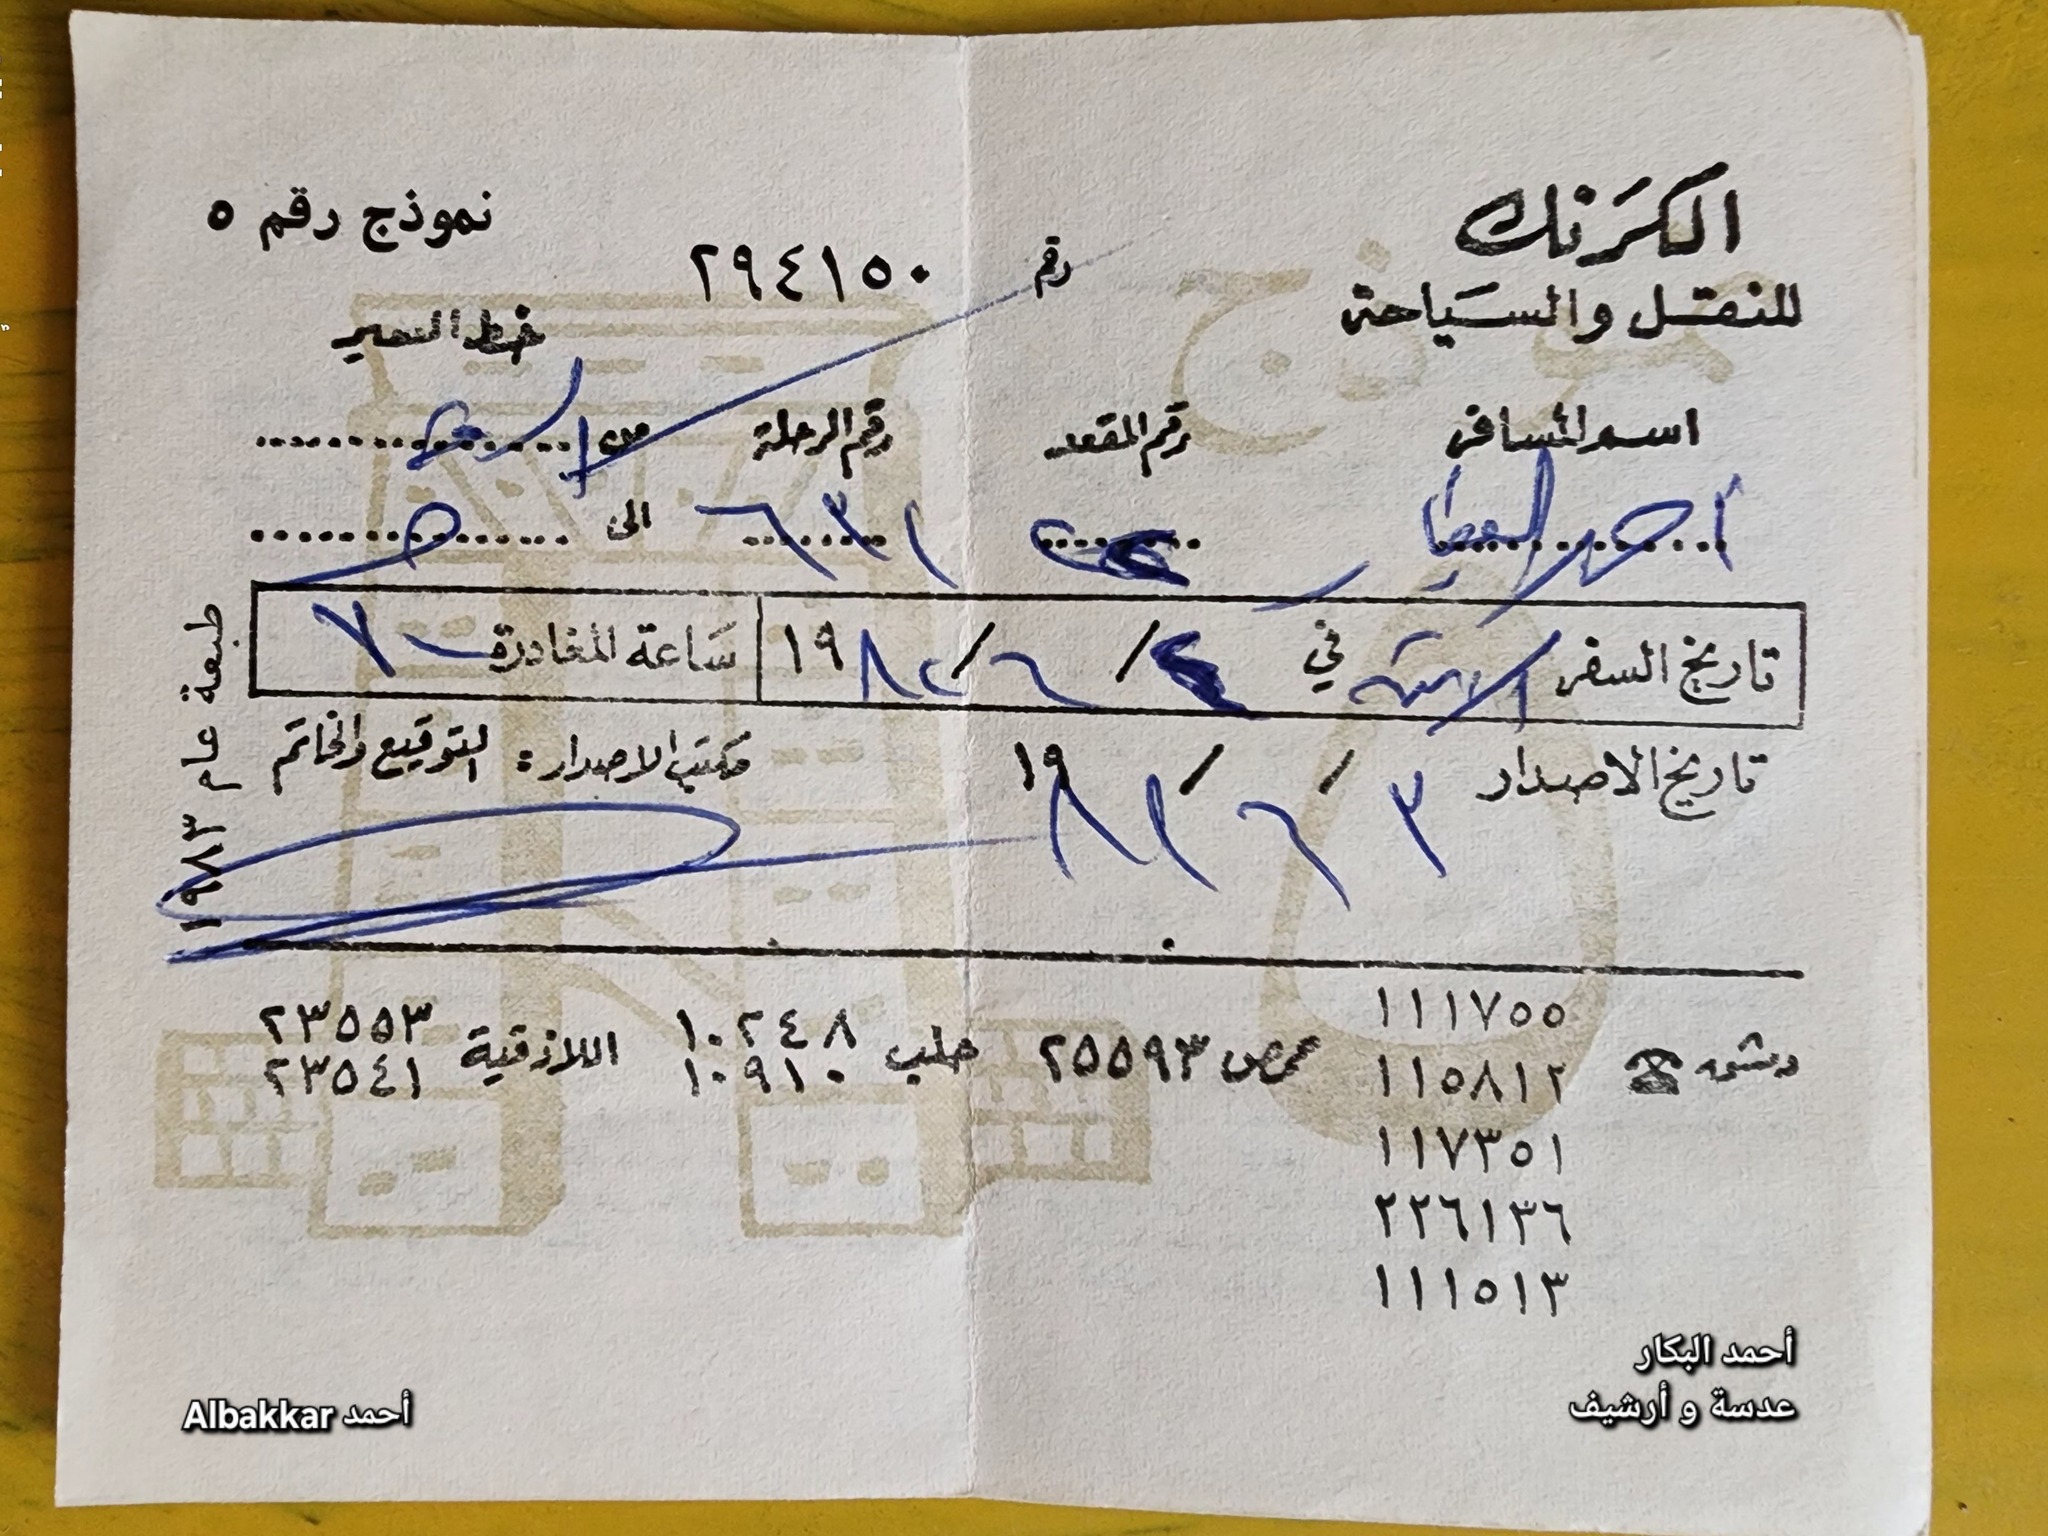 الكرنك
للنقل والسياحة
نموذج رقم ٥
رقم ٢٩٤١٥٠
خط السير
اسم المسافر رقم المقعد رقم الرحلة من
أحمد ٦٣١ الى
تاريخ السفر في / ٦ / ١٩٨ ساعة المغادرة ٧
تاريخ الاصدار ٣ / ٦ / ١٩٨ مكتب الاصدار : التوقيع والخاتم
طبعة عام ١٩٨٣
دمشق ☎ ١١١٧٥٥
١١٥٨١٢
١١٧٣٥١
٢٢٦١٣٦
١١١٥١٣
حمص ٢٥٥٩٣
حلب ١٠٢٤٨
١٠٩١٠
اللاذقية ٢٣٥٥٣
٢٣٥٤١
أحمد البكار
عدسة و أرشيف
أحمد Albakkar